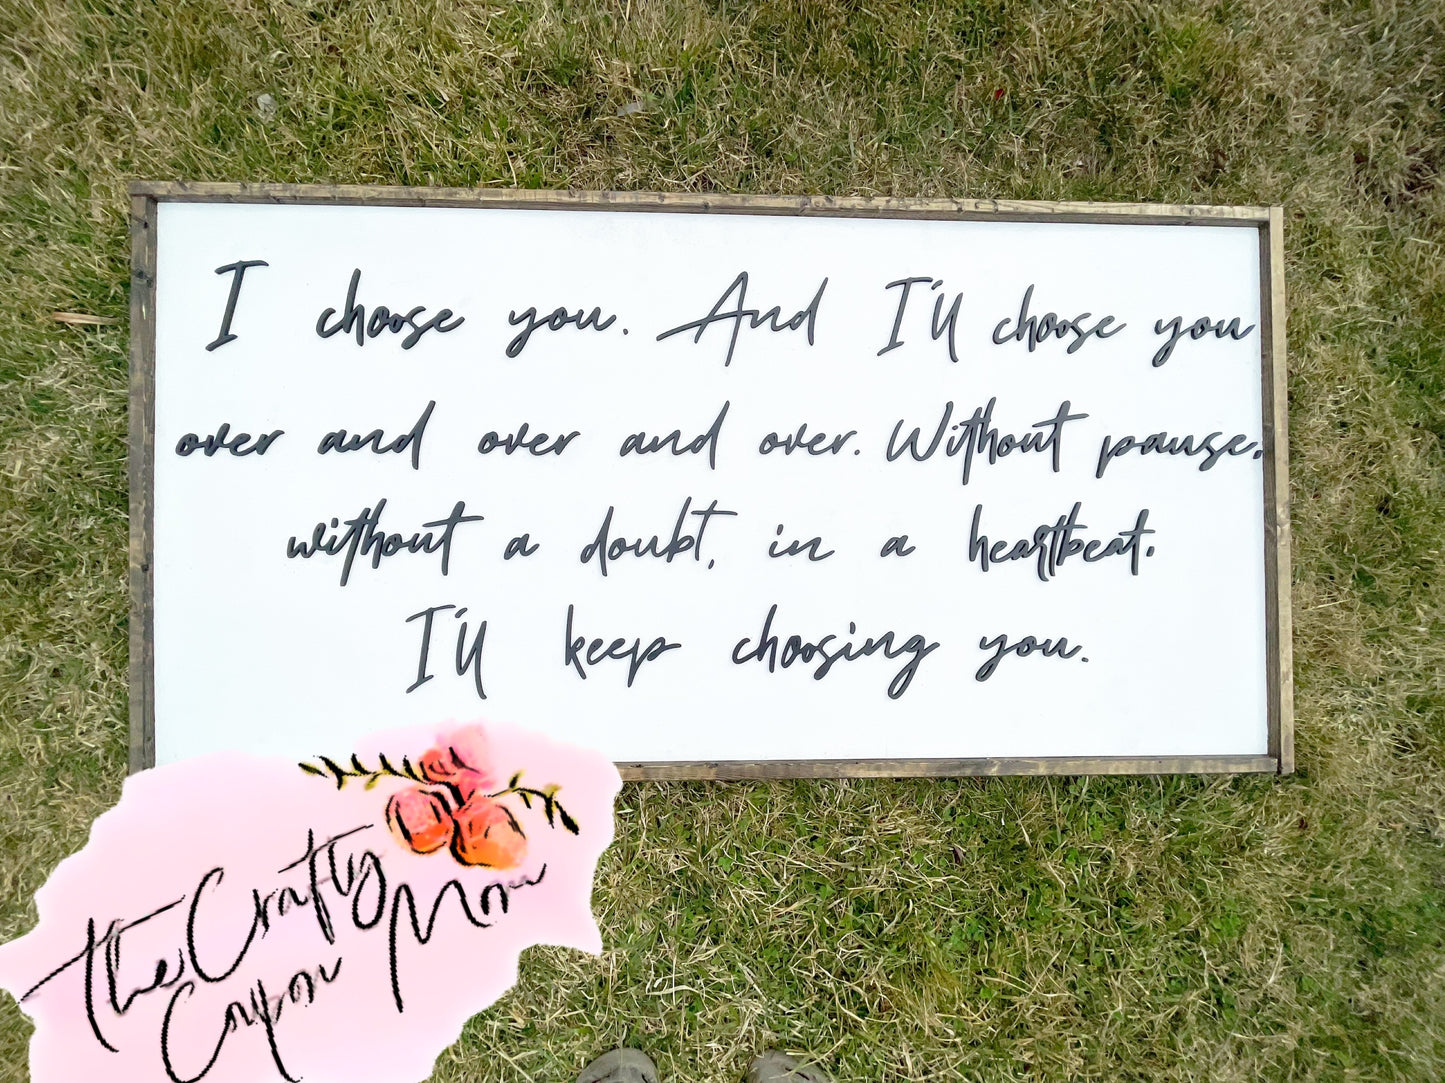 I choose you. And I'll choose you
over and over and over. Without pause,
without a doubt, in a heartbeat.
I'll keep choosing you.
The Crafty
Coupon Mom